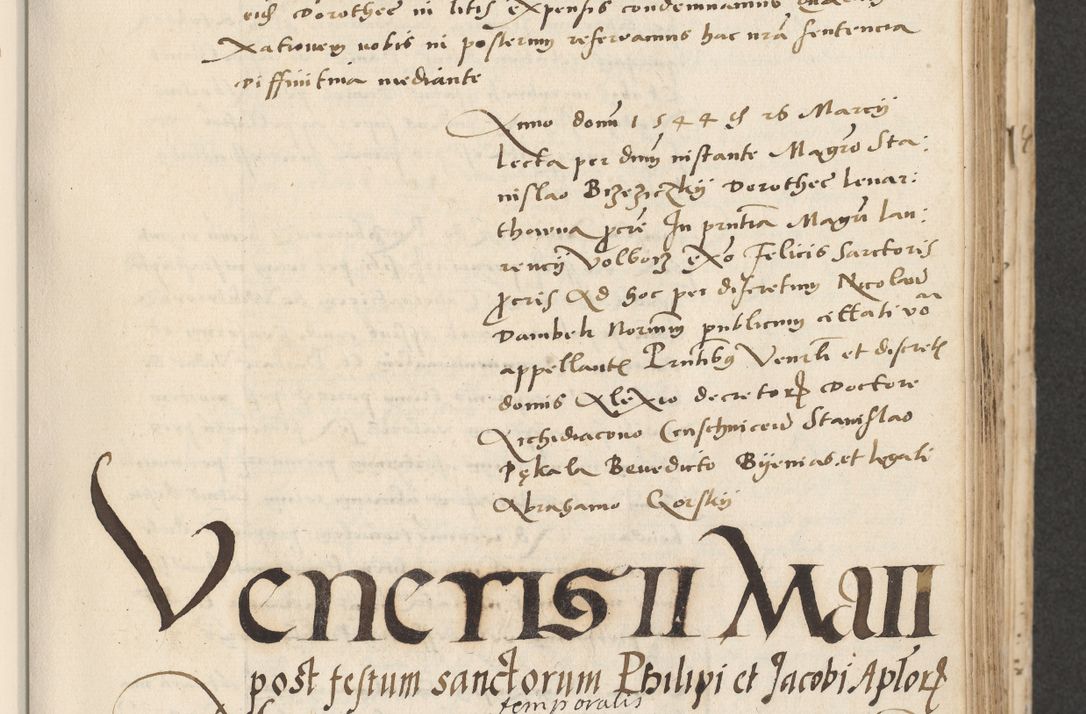 Dorothee in litis expensis condemnamus
xationem nobis in posterum reservamus hac nrã sentencia
diffinitiva mediante
Anno domi 1544 d 26 Marcij
Lecta per dnm instante Magro Sta:
nislao Brzeziczkij Dorothee lenar:
thowna pcre In pntia Magri Lau:
rencij Volborz exo Felicis Sarctoris
pcris Ad hoc per discretum Nicolaum
Dambek Norium publicum cittati vo
appellante Pntibus Venrli et discretis
domis Alexio decretor Doctore
Archidiacono Stanislao
Pękala Benedicto Bijenias et legali
Abrahamo Gorskij
Veneris II Maii
post festum sanctorum Philipi et Jacobi Aplor
temporalis